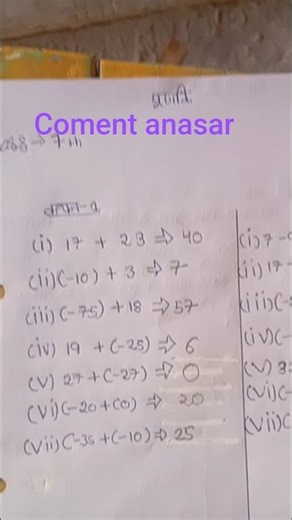 Coment anasar
(i) 17 + 23 ⇒ 40
(ii) (-10) + 3 ⇒ 7
(iii) (-75) + 18 ⇒ 57
(iv) 19 + (-25) ⇒ 6
(v) 27 + (-27) ⇒ 0
(vi) (-20 + (0) ⇒ 20
(vii) (-35 + (-10) ⇒ 25
(i) 7 -
(ii) 17 -
(iii) (-
(iv) (-
(v) 3
(vi) (-
(vii) (